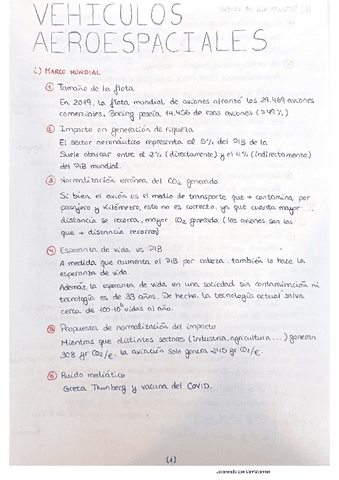 VEHICULOS
AEROESPACIALES
i) MARCO MUNDIAL
① Tamaño de la flota
En 2019, la flota mundial de aviones afrontó los 29.489 aviones
comerciales. Boeing poseía 14.456 de esos aviones (≈49%).
② Impacto en generación de riqueza
El sector aeronáutico representa el 5% del PIB de la
Suele abarcar entre el 2% (directamente) y el 4% (indirectamente)
del PIB mundial.
③ Normalización errónea del CO₂ generado
Si bien el avión es el medio de transporte que + contamina, por
pasajero y kilómetro, esto no es correcto, ya que cuanta mayor
distancia se recorra, mayor CO₂ generada (los aviones son los
que + distancia recorran)
④ Esperanza de vida vs PIB
A medida que aumenta el PIB por cabeza, también lo hace la
esperanza de vida.
Además, la esperanza de vida en una sociedad sin contaminación ni
tecnología es de 33 años. De hecho, la tecnología actual salva
cerca de 100·10⁶ vidas al año.
⑤ Propuesta de normalización del impacto
Mientras que distintos sectores (industria, agricultura...) generan
308 gr CO₂/€, la aviación solo genera 245 gr CO₂/€.
⑥ Ruido mediático
Greta Thunberg y vacuna del COVID.
(1)